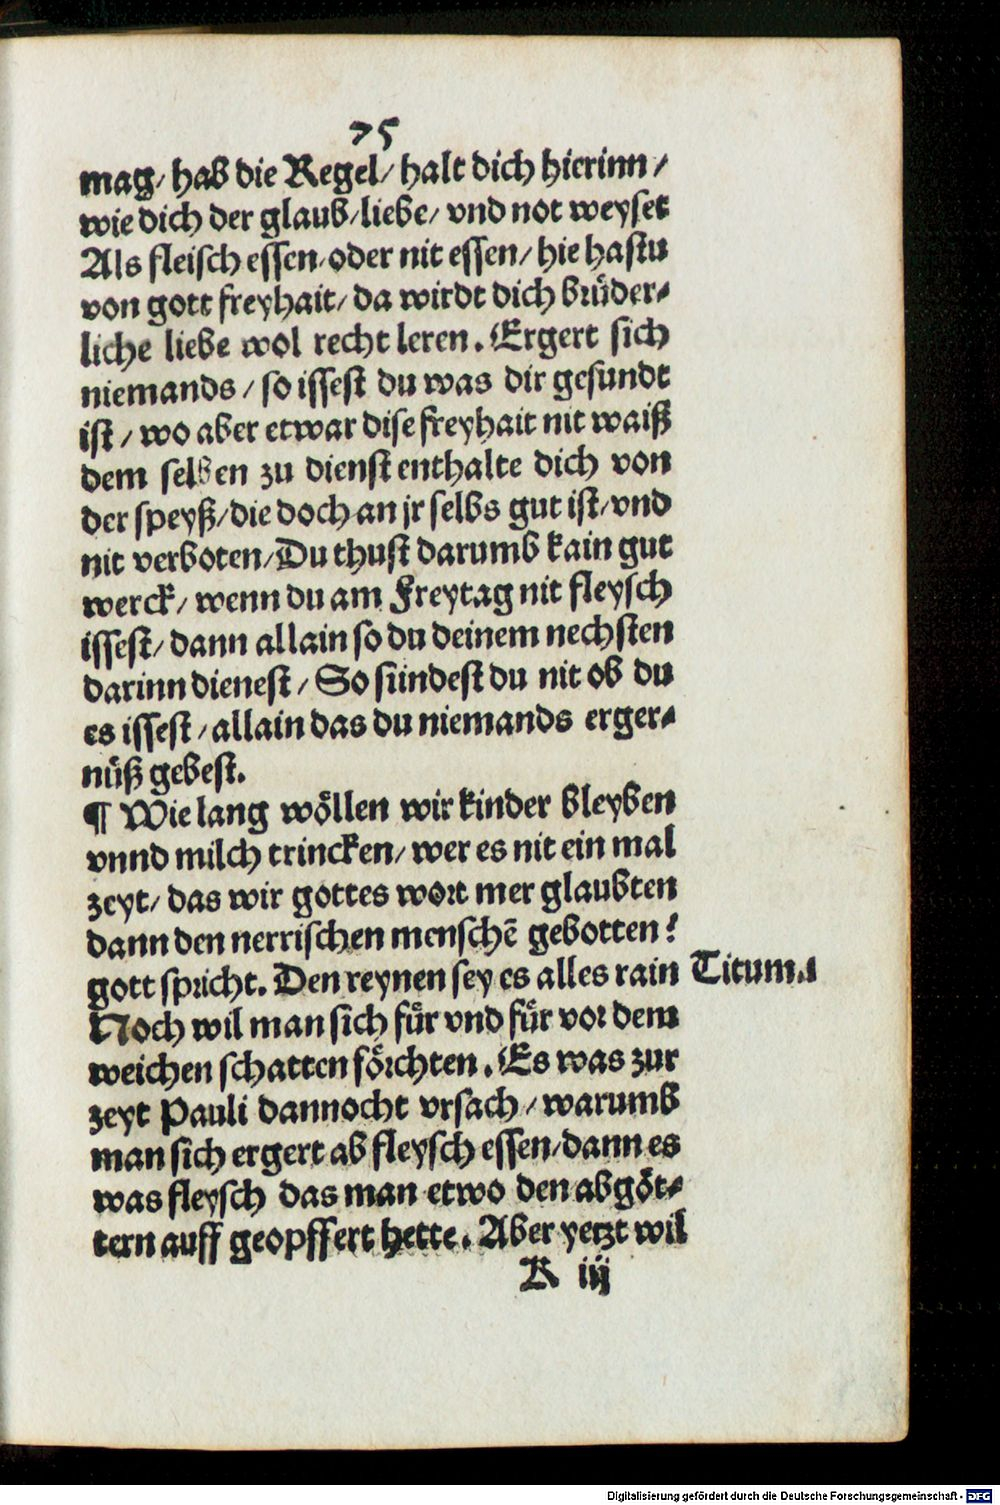 75
mag/ hab die Regel/ halt dich hierinn/
wie dich der glaub/liebe/ vnd not weyset
Als fleisch essen/oder nit essen/ hie hastu
von gott freyhait/ da wirdt dich brüder-
liche liebe wol recht leren. Ergert sich
niemands/ so issest du was dir gesundt
ist/ wo aber etwar dise freyhait nit waiß
dem selben zu dienst enthalte dich von
der speyß/die doch an jr selbs gut ist/vnd
nit verboten/Du thust darumb kain gut
werck/ wenn du am Freytag nit fleysch
issest/ dann allain so du deinem nechsten
darinn dienest/ So sündest du nit ob du
es issest/allain das du niemands erger-
nüß gebest.
¶ Wie lang wöllen wir kinder bleyben
vnnd milch trincken/ wer es nit ein mal
zeyt/ das wir gottes wort mer glaubten
dann den nerrischen menschē gebotten?
gott spricht. Den reynen sey es alles rain Titum.1
Noch wil man sich für vnd für vor dem
weichen schatten förchten. Es was zur
zeyt Pauli dannocht vrsach/ warumb
man sich ergert ab fleysch essen/dann es
was fleysch das man etwo den abgöt-
tern auff geopffert hette. Aber yetzt wil
K iij
Digitalisierung gefördert durch die Deutsche Forschungsgemeinschaft - DFG